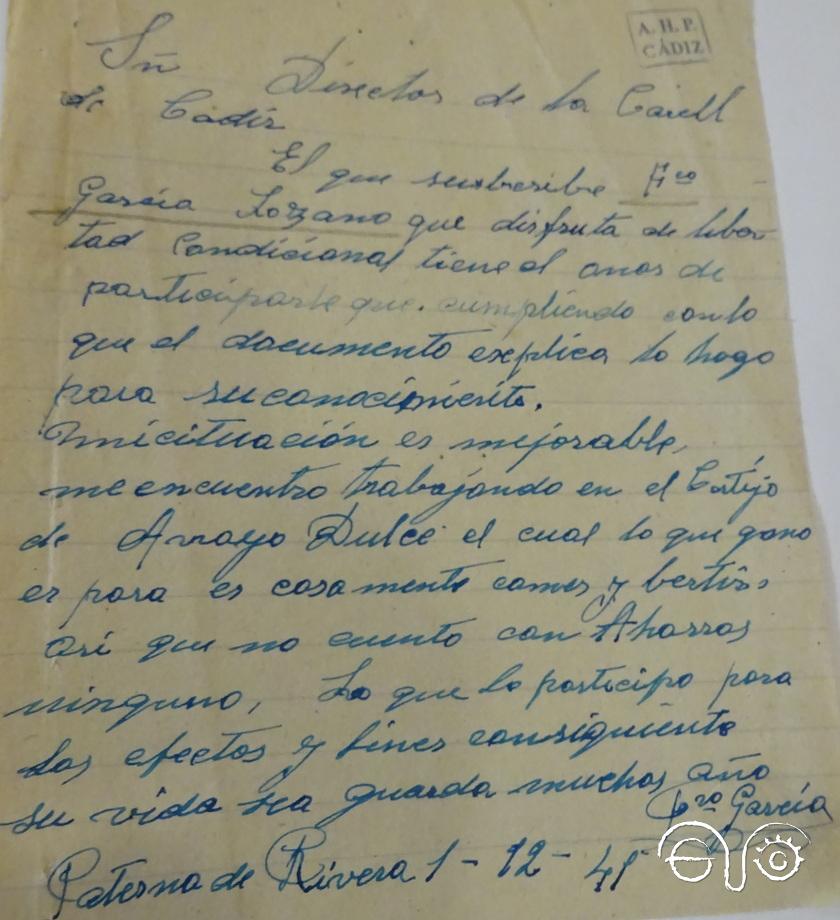 A. H. P.
CÁDIZ
Sñ Director de la Carcell
de Cadiz
El que suscribe Fco
García Lozzano que disfruta de liber
tad Condicional tiene el anos de
participarle que. cumpliendo con lo
que el documento explica lo hago
para su conocimiento.
mi cituación es mejorable,
me encuentro trabajando en el Cortéjo
de Arroyo Dulce el cual lo que gano
es para es casamente comer y bertir,
así que no cuento con Ahorros
ninguno, Lo que lo participo para
los efectos y fines consiguiente
su vida sea guarda muchos año
Fco García
Paterna de Rivera 1-12-45